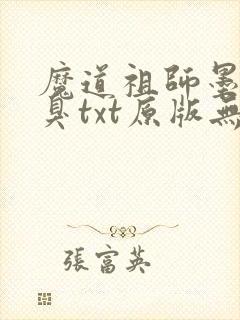 魔道祖師墨
臭txt原版無
張富英